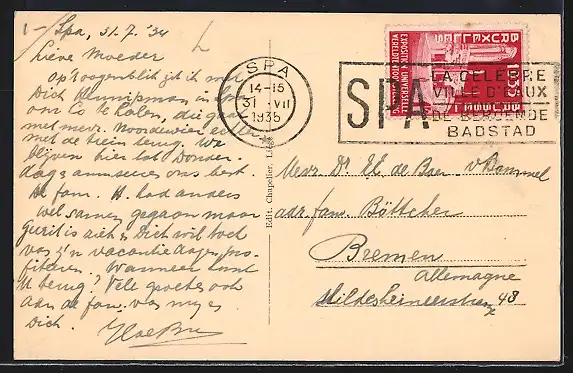 Spa, 31.7.'34
Lieve Moeder
op 't oogenblik zit ik met
Dick Klunipman in
om Co te halen, die gaat
met mevr. Noordewier
met de trein terug. We
blijven hier tot Donder-
dag & amuseeren ons best.
De fam. H. had anders
wel samen gegaan maar
Gerrit is ziek & Dick wil toch
van z'n vacantie dagen pro-
fiteeren. Wanneer komt
U terug? Vele groeten ook
aan de fam. van mij &
Dick.
SPA
14-15
31 VII
1935
SPA
LA CELEBRE
VILLE D'EAUX
DE BEROEMDE
BADSTAD
BRUXELLES
1935
EXPOSITION UNIVERSELLE
Edit. Chapelier, Liège
Mevr. Dr. de Boer v. Bommel
adr. fam. Böttcher
Bremen
Allemagne
Hildesheimerstrasse 48